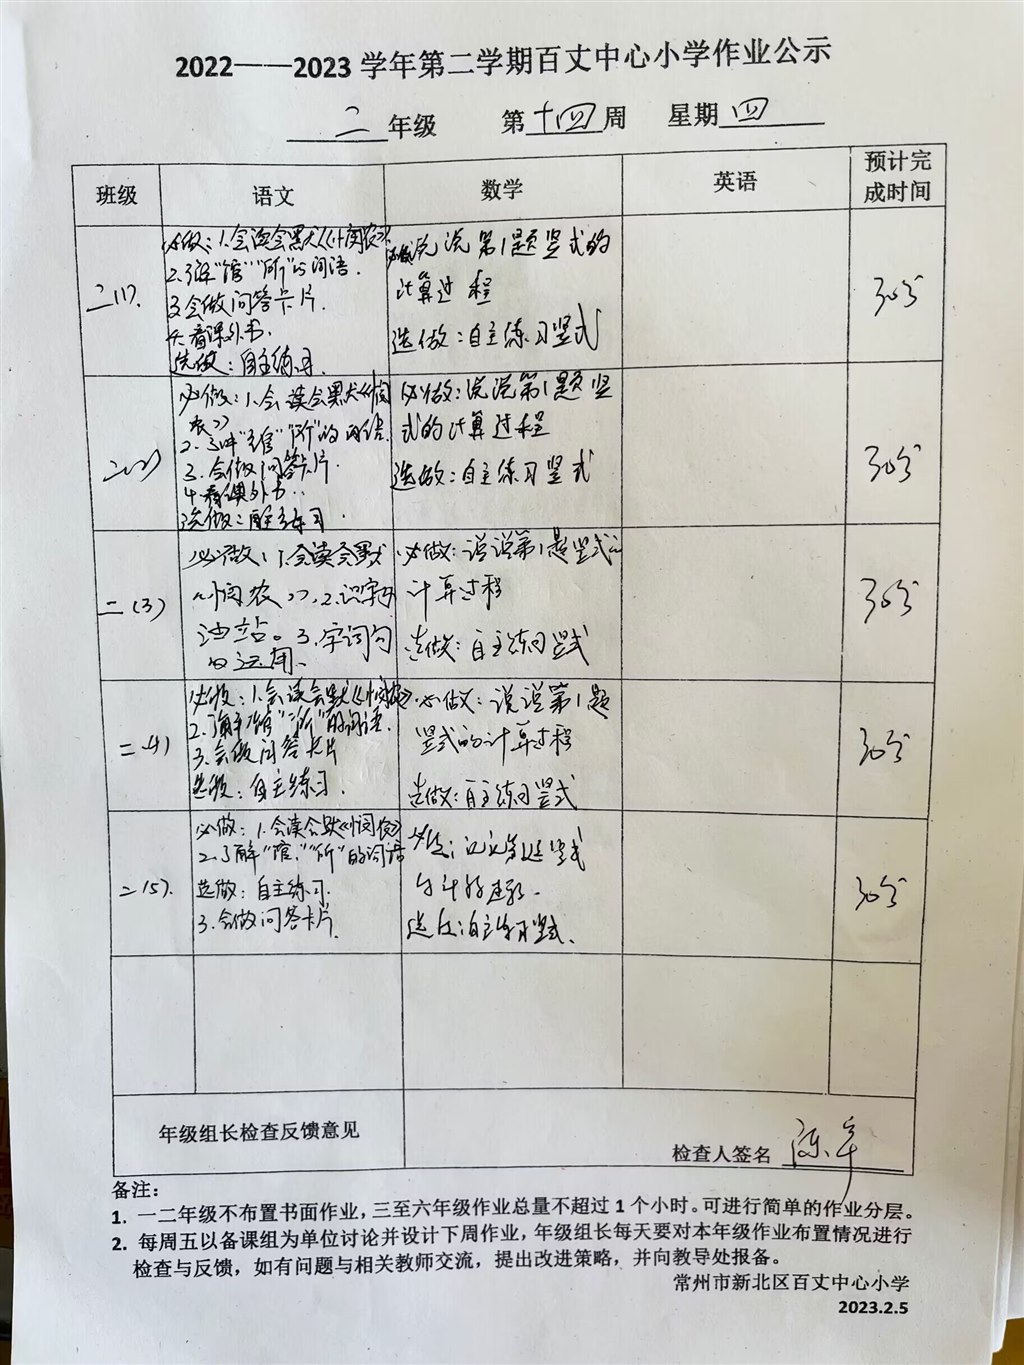 2022——2023 学年第二学期百丈中心小学作业公示
二 年级 第 十四 周 星期 四
班级 语文 数学 英语 预计完成时间
二(1).
必做：1.会读会默《悯农》
2.了解"馆""所"的词语.
3.会做问答卡片.
4.看课外书.
选做：自主练习.
必做说说第1题竖式的
计算过程
选做：自主练习竖式
30分
二(2)
必做：1.会读会默《悯
农》
2.了解"馆""所"的词语.
3.会做问答卡片.
4.看课外书.
选做：自主练习.
必做：说说第1题竖
式的计算过程
选做：自主练习竖式
30分
二(3)
必做：1.会读会默
《悯农》.2.识字加
油站。3.字词句
的运用.
必做：说说第1题竖式的
计算过程
选做：自主练习竖式
30分
二(4)
必做：1.会读会默《悯农》
2.了解"馆""所"的词语.
3.会做问答卡片
选做：自主练习.
必做：说说第1题
竖式的计算过程
选做：自主练习竖式
30分
二(5).
必做：1.会读会默《悯农》
2.了解"馆"、"所"的词语
选做：自主练习.
3.会做问答卡片.
竖式
选做：自主练习竖式.
30分
年级组长检查反馈意见
检查人签名
备注：
1. 一二年级不布置书面作业，三至六年级作业总量不超过 1 个小时。可进行简单的作业分层。
2. 每周五以备课组为单位讨论并设计下周作业，年级组长每天要对本年级作业布置情况进行
检查与反馈，如有问题与相关教师交流，提出改进策略，并向教导处报备。
常州市新北区百丈中心小学
2023.2.5